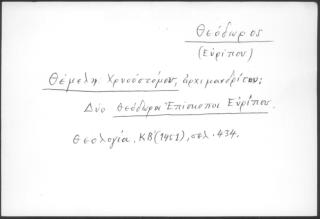 Θεόδωρος
(Εὐρίπου)
Θέμελη Χρυσοστόμου, ἀρχιμανδρίτου:
Δύο Θεόδωροι Ἐπίσκοποι Εὐρίπου.
Θεολογία. ΚΒ' (1951), σελ. 434.